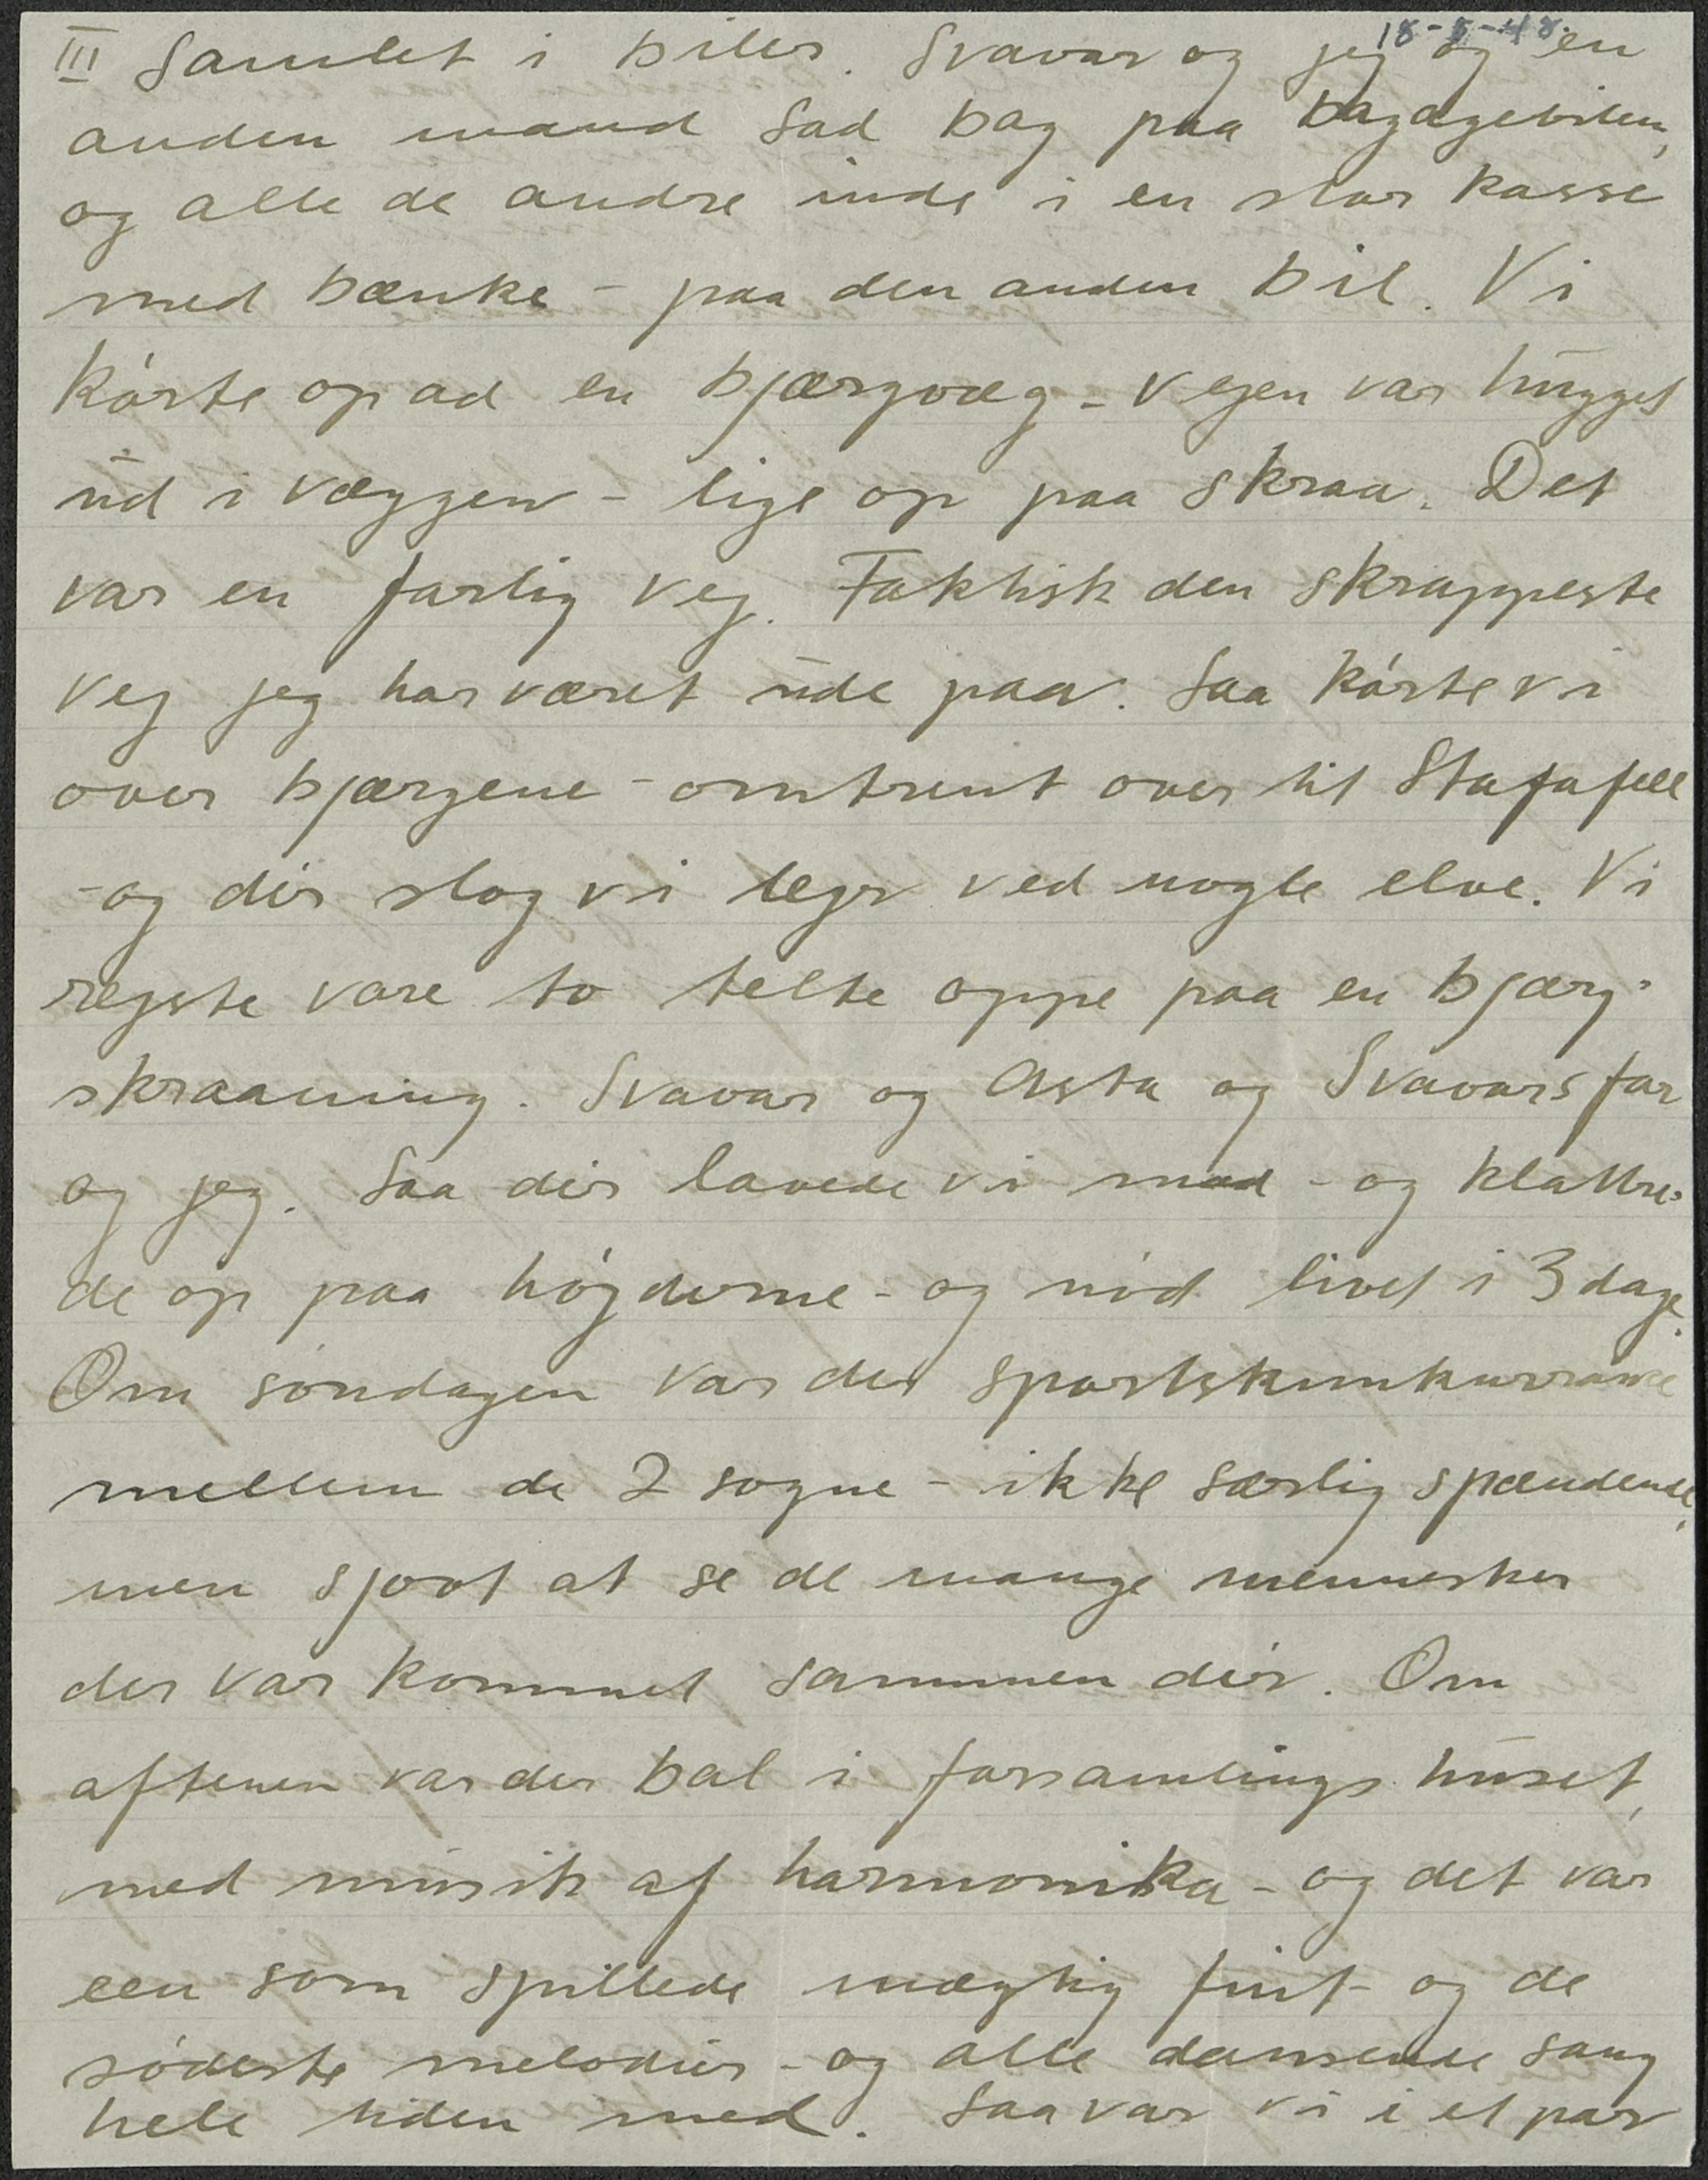 18-8-48.
III Samlet i biler. Svavar og jeg og en
anden mand sad bag paa bagagebilen,
og alle de andre inde i en stor kasse
med bænke - paa den anden bil. Vi
kórte op ad en bjærgvæg - vejen var hugget
ud i væggen - lige op paa skraa. Det
var en farlig vej. Faktisk den skrappeste
vej jeg har været ude paa. Saa kórte vi
over bjærgene - omtrent over til Stafafell
- og dér slog vi lejr ved nogle elve. Vi
rejste vore to telte oppe paa en bjærg-
skraaning. Svavar og Asta og Svavars far
og jeg. Saa dér lavede vi mad - og klattre-
de op paa hójderne - og nód livet i 3 dage.
Om sóndagen var der sportskunkurrance
mellem de 2 sogne - ikke særlig spændende,
men sjovt at se de mange mennesker
der var kommet sammen dér. Om
aftenen var der bal i forsamlings huset,
med musik af harmonika - og det var
een som spillede mægtig fint - og de
sódeste melodier - og alle dansende sang
hele tiden med. Saa var vi i et par